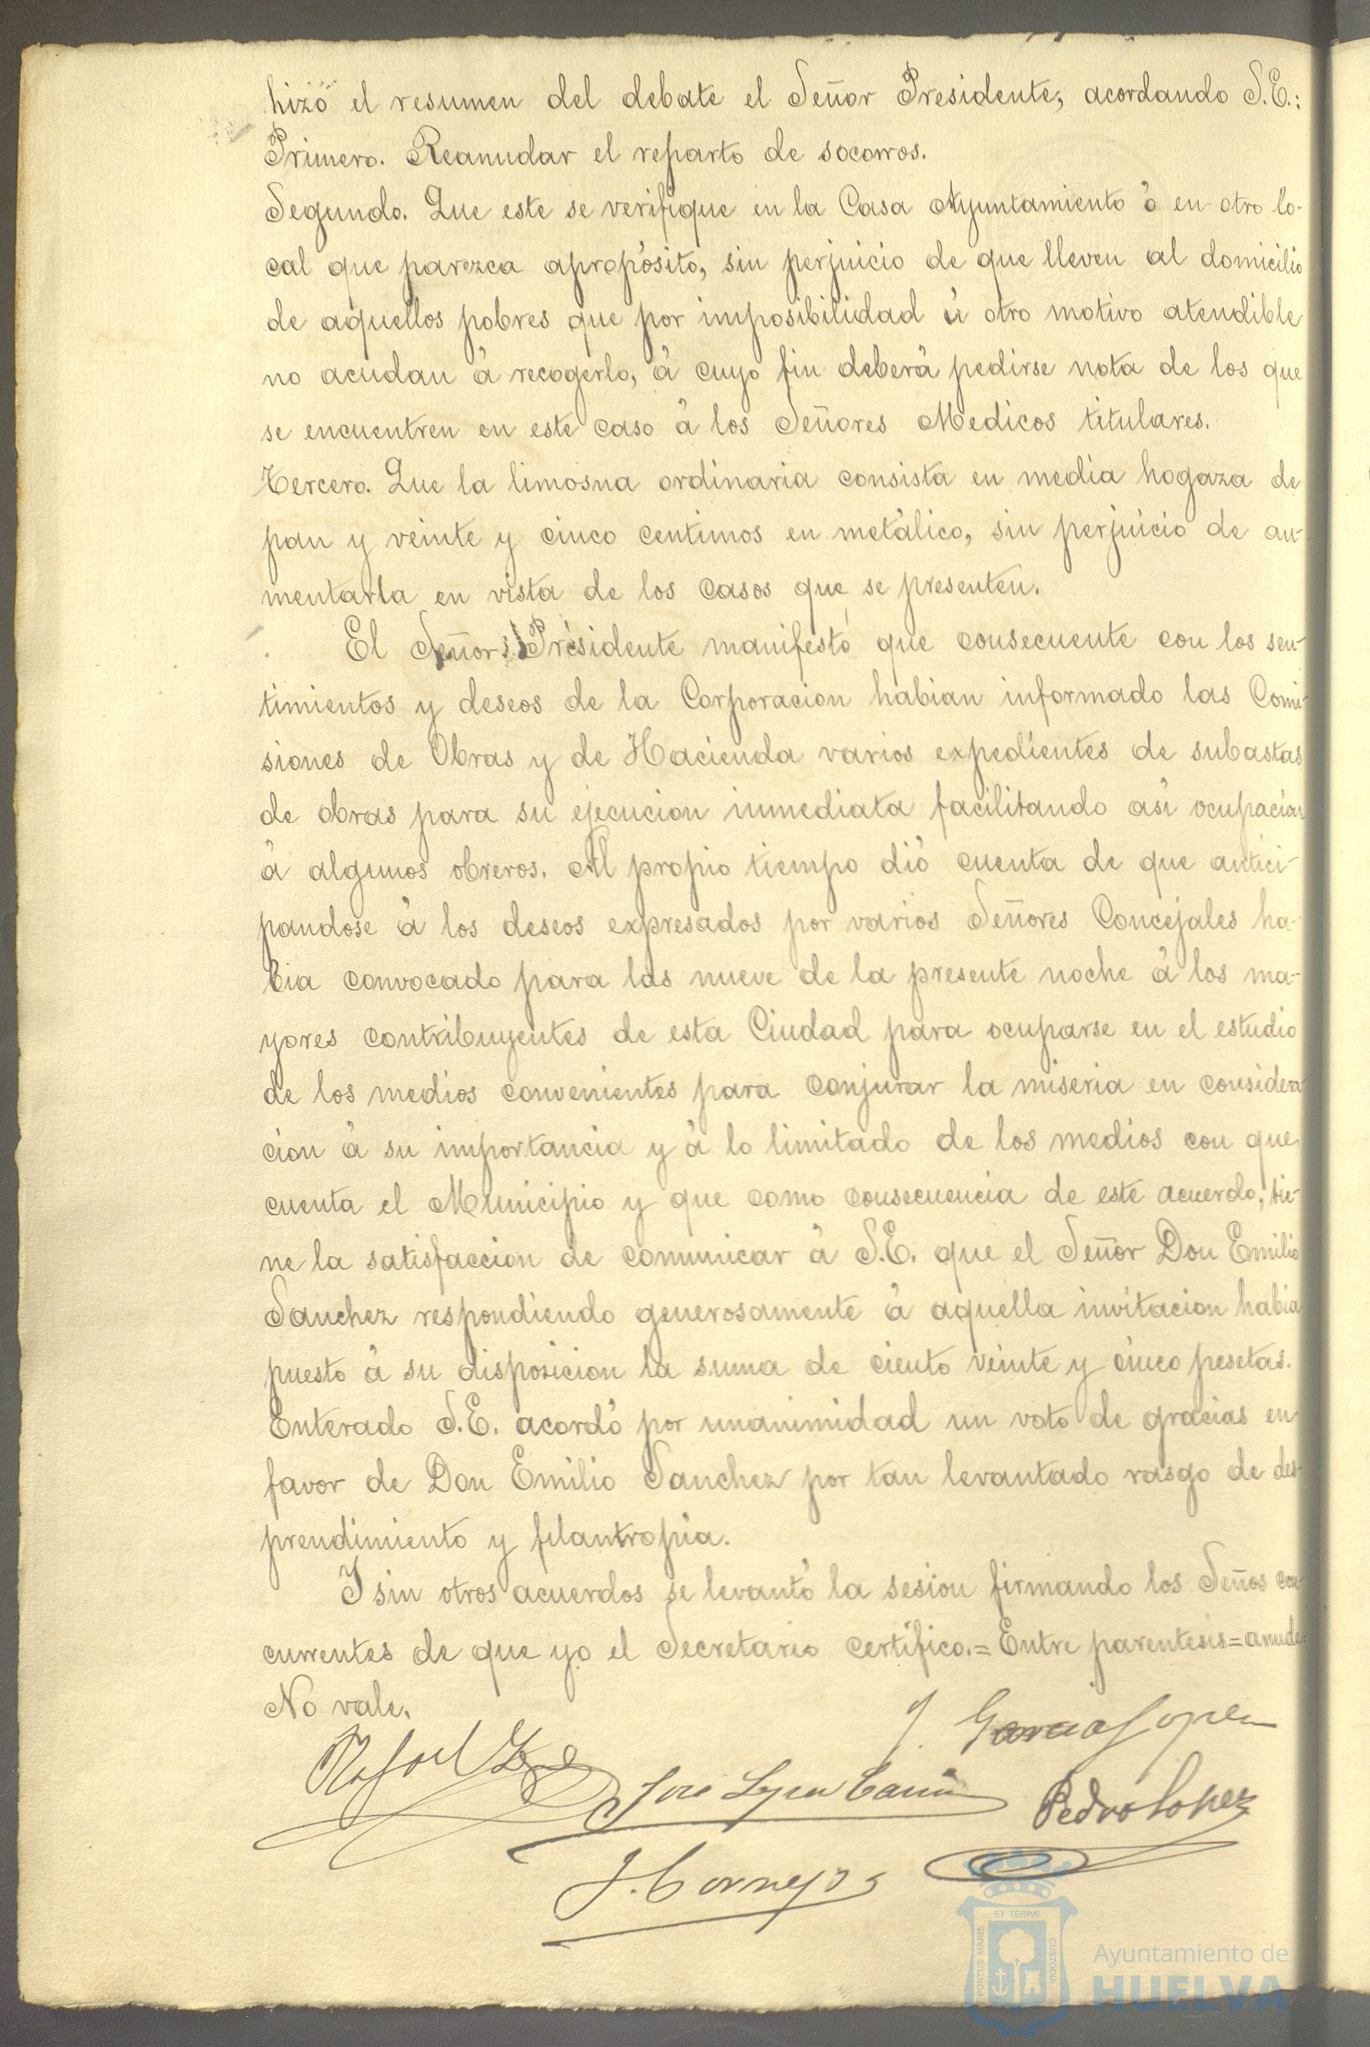 hizo el resumen del debate el Señor Presidente, acordando S.E.:
Primero. Reanudar el reparto de socorros.
Segundo. Que este se verifique en la Casa Ayuntamiento ó en otro lo-
cal que parezca apropósito, sin perjuicio de que lleven al domicilio
de aquellos pobres que por imposibilidad ú otro motivo atendible
no acudan á recogerlo, á cuyo fin deberá pedirse nota de los que
se encuentren en este caso á los Señores Medicos titulares.
Tercero. Que la limosna ordinaria consista en media hogaza de
pan y veinte y cinco centimos en metálico, sin perjuicio de au-
mentarla en vista de los casos que se presenten.
El Señor Presidente manifestó que consecuente con los sen-
timientos y deseos de la Corporacion habian informado las Comi-
siones de Obras y de Hacienda varios expedientes de subastas
de obras para su ejecucion inmediata facilitando asi ocupacion
á algunos obreros. Al propio tiempo dió cuenta de que antici-
pandose á los deseos expresados por varios Señores Concejales ha-
bia convocado para las nueve de la presente noche á los ma-
yores contribuyentes de esta Ciudad para ocuparse en el estudio
de los medios convenientes para conjurar la miseria en considera-
cion á su importancia y á lo limitado de los medios con que
cuenta el Municipio y que como consecuencia de este acuerdo, tie-
ne la satisfaccion de comunicar á S.E. que el Señor Don Emilio
Sanchez respondiendo generosamente á aquella invitacion habia
puesto á su disposicion la suma de ciento veinte y cinco pesetas.
Enterado S.E. acordó por unanimidad un voto de gracias en
favor de Don Emilio Sanchez por tan levantado rasgo de des-
prendimiento y filantropia.
Y sin otros acuerdos se levantó la sesion firmando los Seños con-
currentes de que yo el Secretario certifico.= Entre parentesis=anude=
No vale.
J. Garcia Lopez
Rafael
Jose
Pedro Lopez
J. Cornejo
ET TERRÆ
PORTUS MARIS
CUSTODIA
Ayuntamiento de
HUELVA